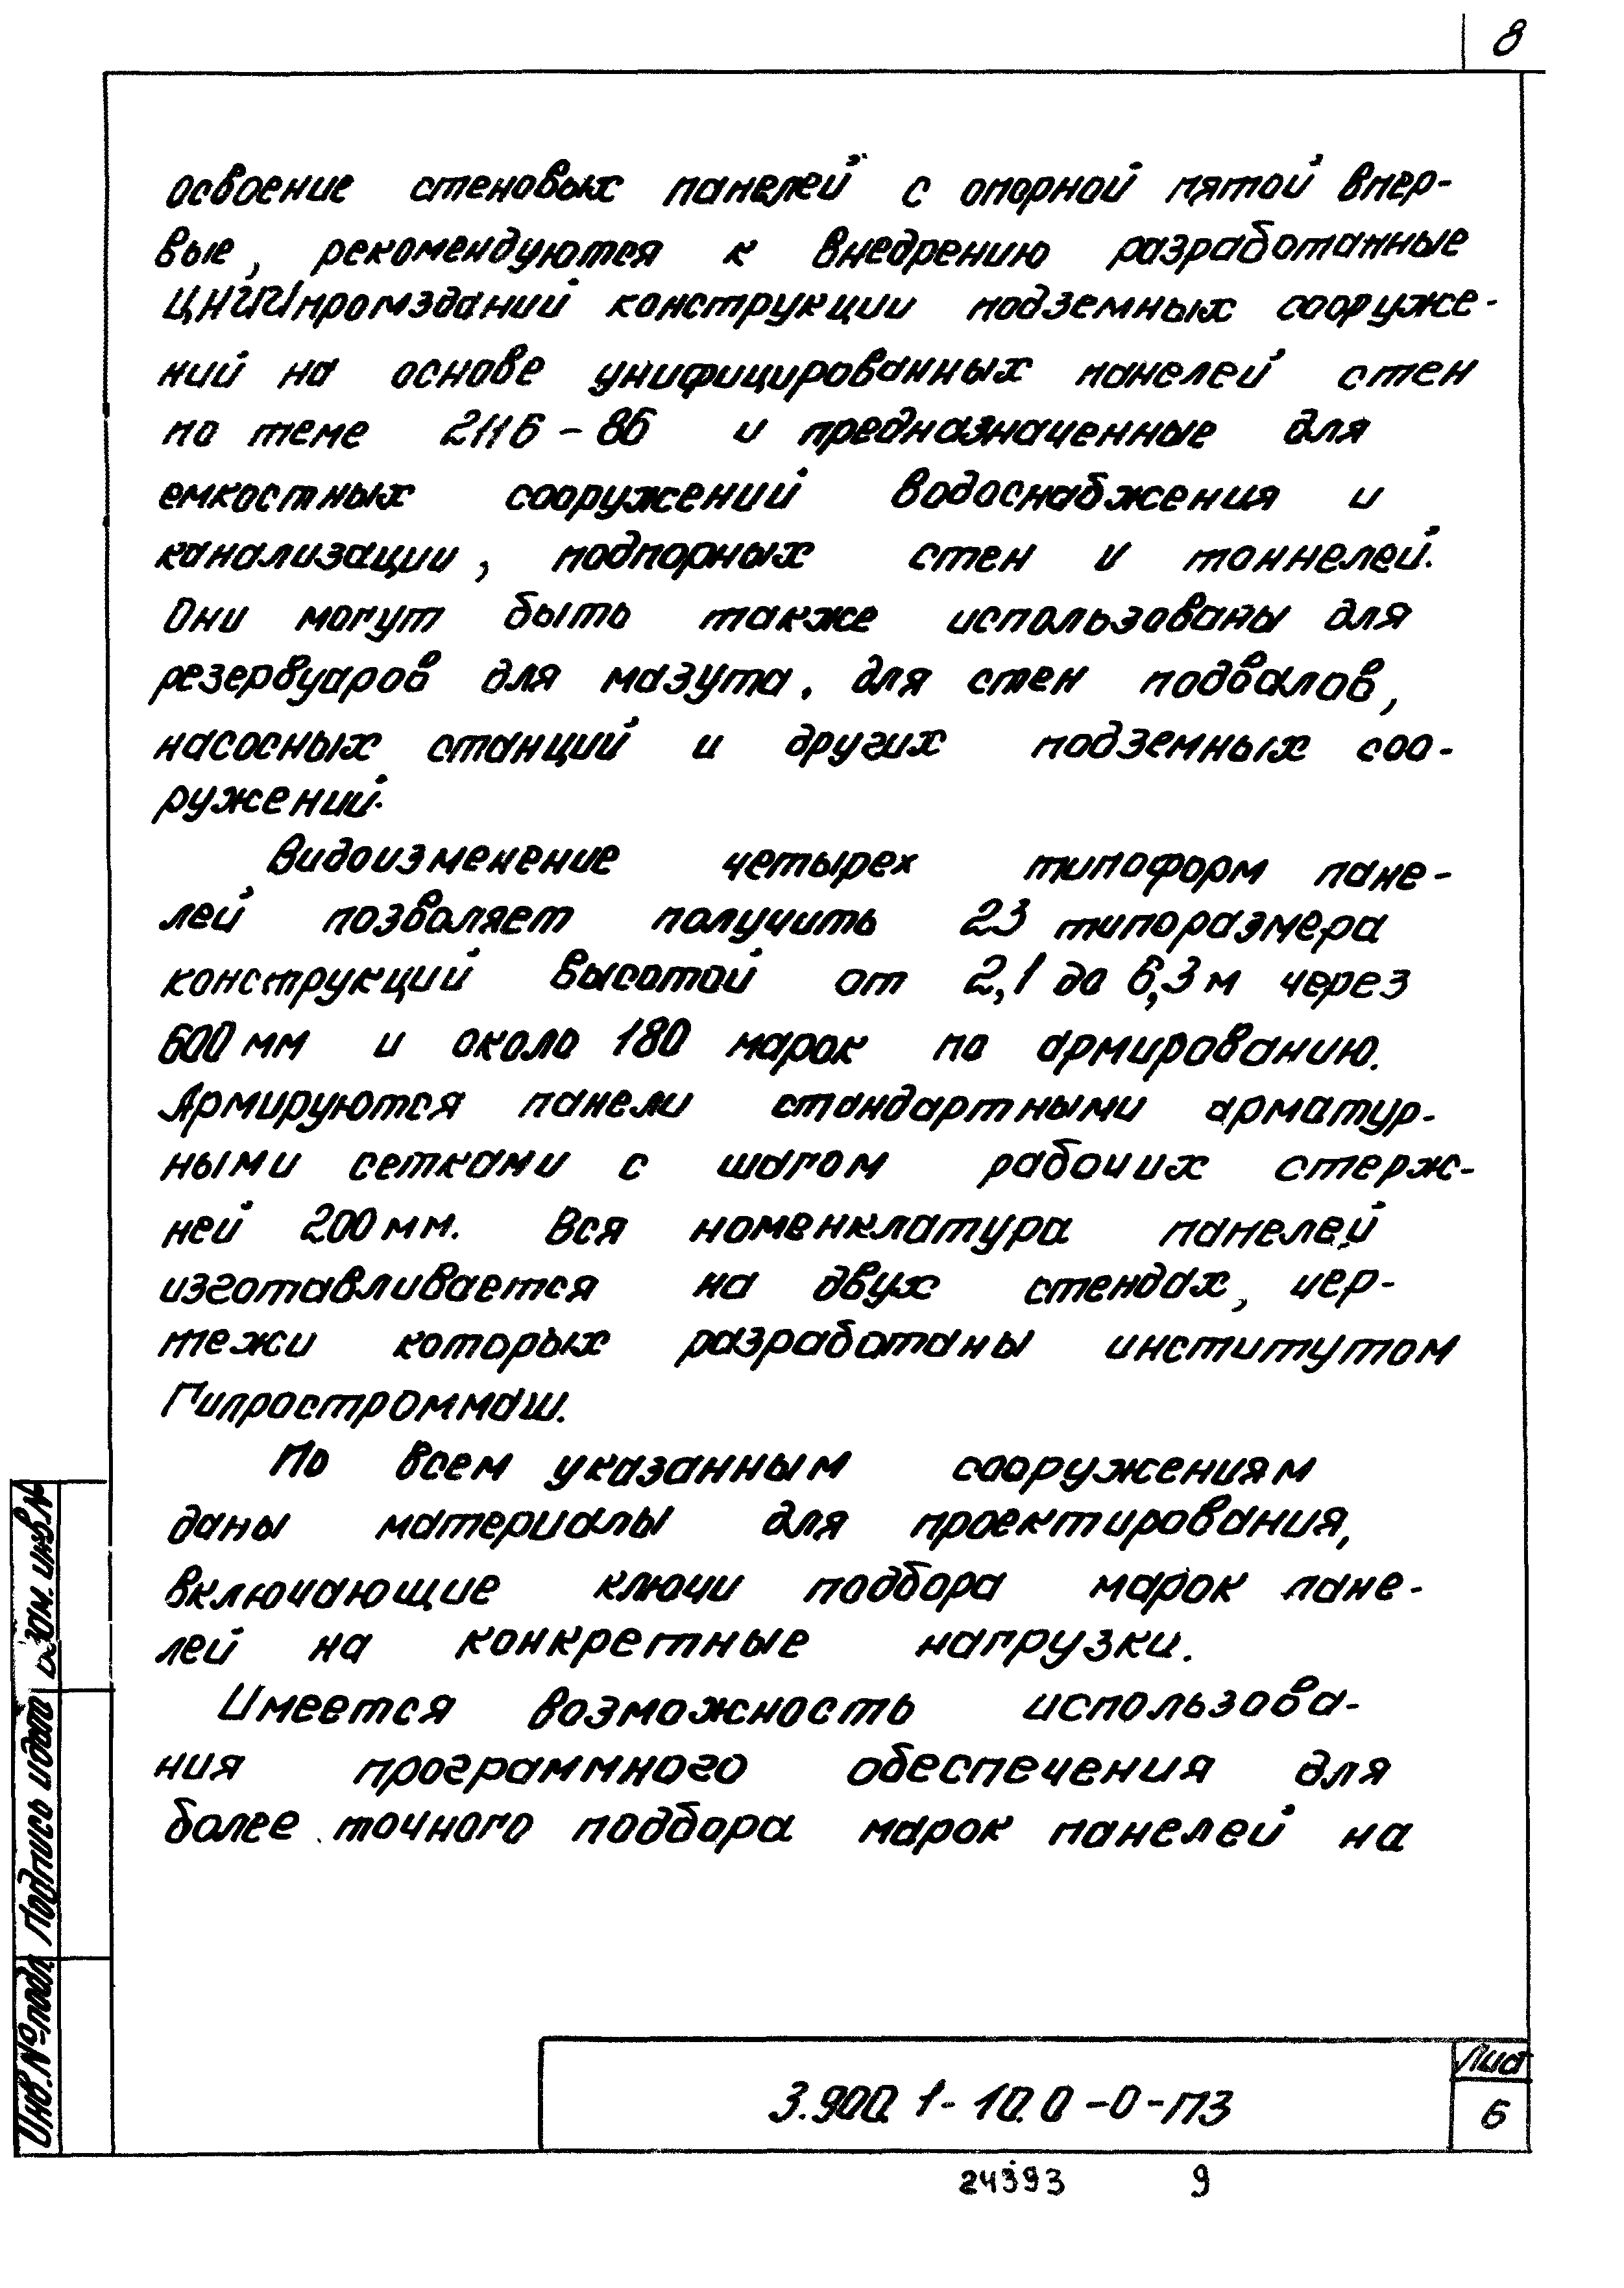 8
освоение стеновых панелей с опорной пятой впер-
вые, рекомендуются к внедрению разработанные
ЦНИИпромзданий конструкции подземных сооруже-
ний на основе унифицированных панелей стен
по теме 2116-86 и предназначенные для
емкостных сооружений водоснабжения и
канализации, подпорных стен и тоннелей.
Они могут быть также использованы для
резервуаров для мазута, для стен подвалов,
насосных станций и других подземных соо-
ружений.
Видоизменение четырех типоформ пане-
лей позволяет получить 23 типоразмера
конструкций высотой от 2,1 до 6,3 м через
600 мм и около 180 марок по армированию.
Армируются панели стандартными арматур-
ными сетками с шагом рабочих стерж-
ней 200 мм. Вся номенклатура панелей
изготавливается на двух стендах, чер-
тежи которых разработаны институтом
Гипростроммаш.
По всем указанным сооружениям
даны материалы для проектирования,
включающие ключи подбора марок пане-
лей на конкретные нагрузки.
Имеется возможность использова-
ния программного обеспечения для
более точного подбора марок панелей на
Взам. инв.№
Подпись и дата
Инв.№ подл
3.900.1-10.0-0-ПЗ
Лист
6
24393 9